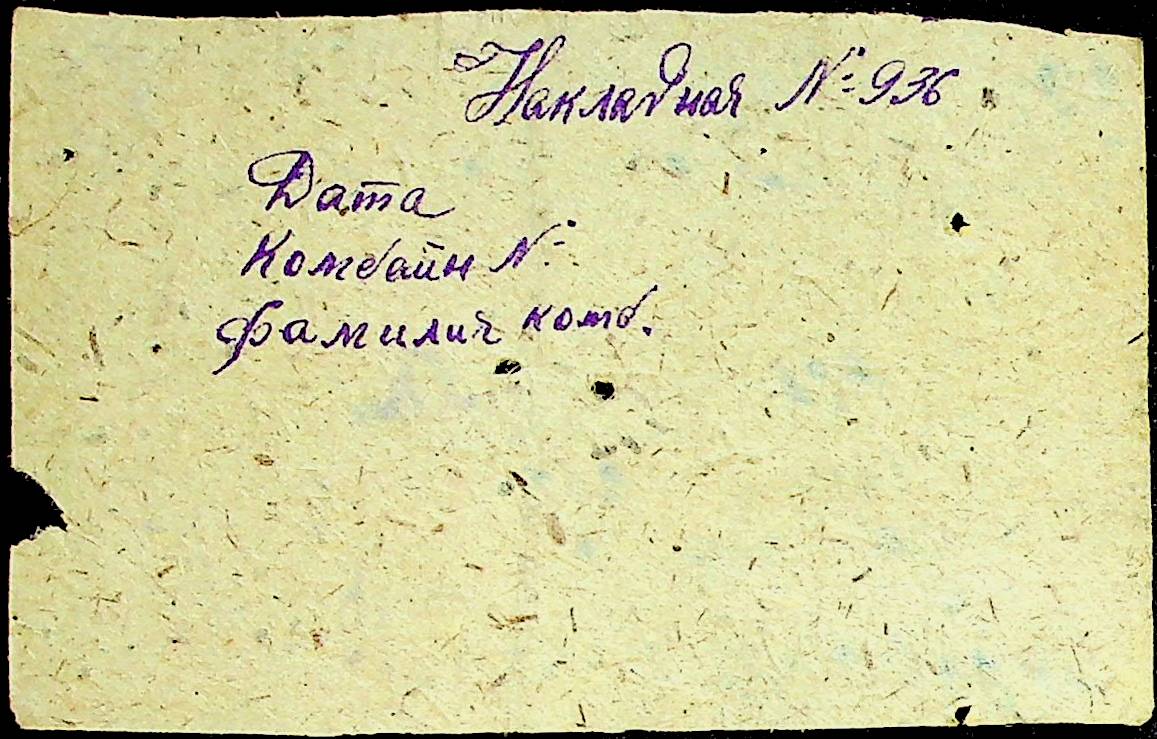 Накладная № 936
Дата
Комбайн №
Фамилия комб.